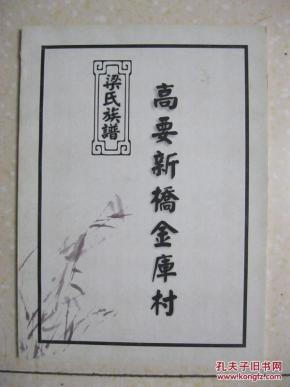 高要新橋金庫村
梁氏族譜
孔夫子旧书网
www.kongfz.com